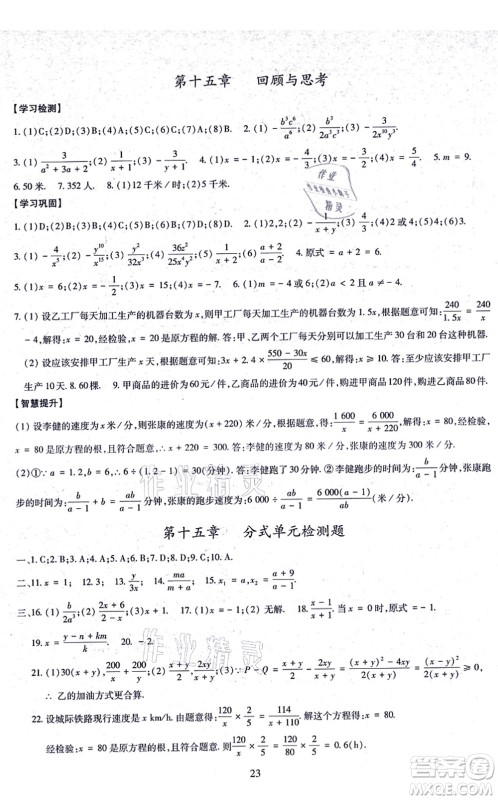 第十五章　回顾与思考
【学习检测】
1. (1)C;(2)D;(3)B;(4)C;(5)D;(6)C;(7)A;(8)B. 2. (1) -b³c⁶/a⁶;(2) y³/2x;(3) -3/2x¹⁰.
3. (1) 3/(a²+3a+2);(2) 1/(x+1);(3) -3/(y+1). 4. (1)x=9;(2)x=3;(3)x=4;(4)x=5/4. 5. m=9.
6.50 米. 7.352 人. 8. (1)12 千米/时;(2)15 千米/时.
【学习巩固】
1. (1)C;(2)B;(3)A;(4)D;(5)C;(6)B;(7)D;(8)A. 2. (1) -1/(x+y);(2)2;(3)
3. (1) -4/x⁵;(2) -y¹⁰/x¹⁵;(3) y³/32x³;(4) 36z²/25x⁴y²;(5)(1)x=0;(3)x=15;(4)x=7;(6)(a+2)/(a-2). 4. 原式=-1.
7. (1) 设乙工厂每天加工生产的机器台数为 x,则甲工厂每天加工生产的机器台数为 1.5x,可得:240/1.5x=240/x
-4,解得:x=20,经检验,x=20 是原方程的解. 答:甲、乙两个工厂每天分别可以加工生产 30 台和 20 台这种机器.
(2) 设应该安排甲工厂生产 x 天,根据题意得:3x+2.4×(550-30x)/20≤60,解得:x≥10. 答:至少应该安排甲工厂
生产 10 天. 8.60棵. 9. 甲商品的进价为60元,乙商品的进价为120元.
【智慧提升】
(1) 设李健的速度为 x 米/分,则张康的速度为(x+220) 米/分,根据题意得:1 600/x=6 000/(x+220),解得:x=80,经检
验,x=80 是原方程的根,且符合题意,x+220=300. 答:李健的速度为 80 米/分,张康的速度为 300 米/分.
(2)①∵a=1.2,b=6,∴6÷(1.2-1)=30(分钟). 故李健跑了 30 分钟;②李健跑步的时间:b/(a-1)分钟,张康跑
步的时间:b/(a-1)+b=ab/(a-1)分钟,张康的跑步速度为:6 000÷ab/(a-1)=6 000(a-1)/ab 米/分.
第十五章　分式单元检测题
一、1. C; 2. B; 3. A; 4. D; 5. C; 6. C; 7. D; 8. A; 9. B; 10. B.
二、11. x=1; 12. 24; 13. x-4; 14. ma/(m+a); 15. (a+9)/(a-1).
三、16. (1) b/a³;(2)(2x+6)/(2-6x);(3)x+2. 17. (1)x=-1;(2)无解. 18. 原式=(x-1)/(x+1).
19. x=(y-n+km)/k. 20. -2.
21. (1)30(x+y),200/x,200/y;(2)(x+y)/2,2xy/(x+y);(3)∵P-Q=(x+y)/2-2xy/(x+y)=(x-y)²/2(x+y)>0,
∴乙的加油方式更合算.
22. 设城际铁路现行速度是 x km/h. 由题意得:120/x×2/5=114/(x+110). 解这个方程得:x=80.
经检验:x=80 是原方程的根,且符合题意. 则120/x×2/5=120/80×2/5=0.6(h).
23
作业精灵
作业精灵
答案圈
MXQE.COM